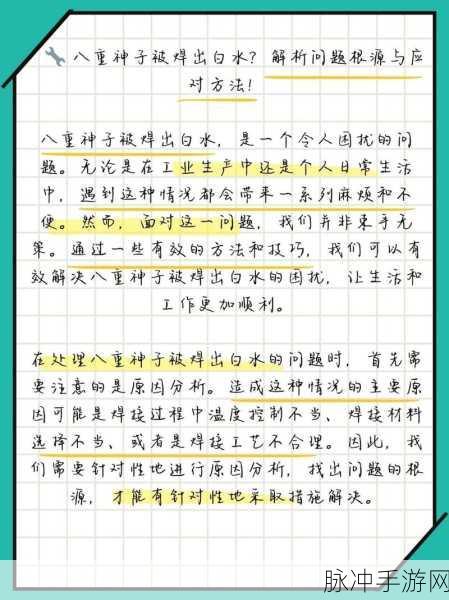 🔧八重神子被焊出白水？解析问题根源与应
对方法！
八重神子被焊出白水，是一个令人困扰的问
题。无论是在工业生产中还是个人日常生活
中，遇到这种情况都会带来一系列麻烦和不
便。然而，面对这一问题，我们并非束手无
策。通过一些有效的方法和技巧，我们可以有
效解决八重神子被焊出白水的困扰，让生活和
工作更加顺利。
在处理八重神子被焊出白水的问题时，首先需
要注意的是原因分析。造成这种情况的主要原
因可能是焊接过程中温度控制不当、焊接材料
选择不当、或者是焊接工艺不合理。因此，我
们需要针对性地进行原因分析，找出问题的根
源，才能有针对性地采取措施解决。
脉冲手游网